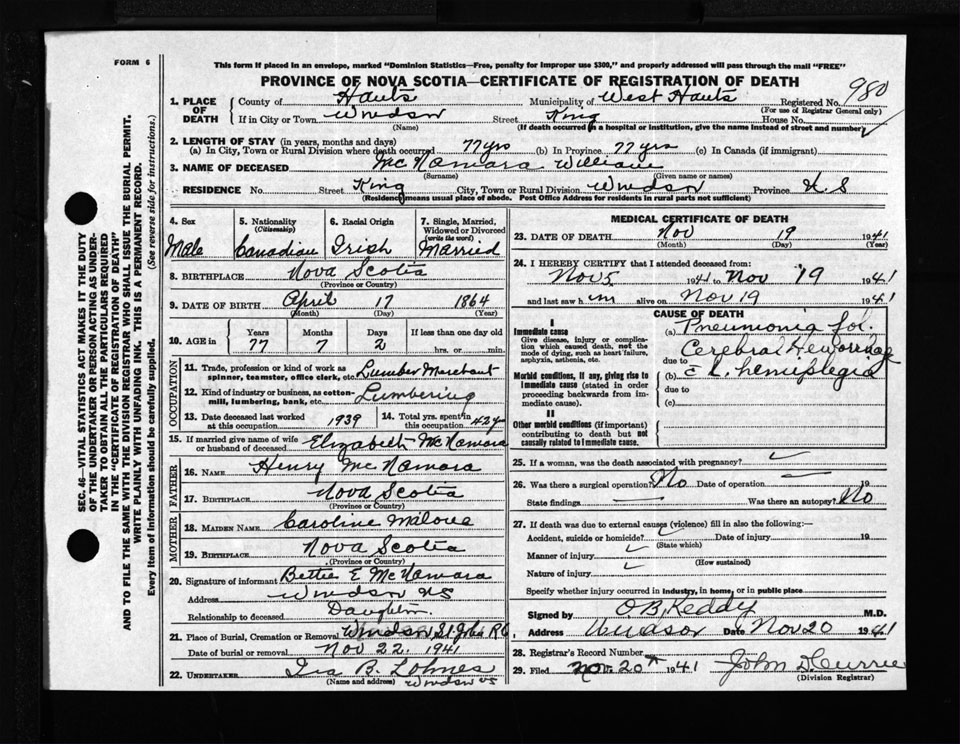 FORM 6
This form if placed in an envelope, marked "Dominion Statistics—Free, penalty for improper use $300," and properly addressed will pass through the mail "FREE"
PROVINCE OF NOVA SCOTIA—CERTIFICATE OF REGISTRATION OF DEATH
980
1. PLACE OF DEATH County of Hants Municipality of West Hants Registered No.
(For use of Registrar General only)
If in City or Town Windsor Street King House No.
(Name) (If death occurred in a hospital or institution, give the name instead of street and number)
2. LENGTH OF STAY (in years, months and days)
(a) In City, Town or Rural Division where death occurred 77 yrs (b) In Province 77 yrs (c) In Canada (if immigrant)
3. NAME OF DECEASED McNamara William
(Surname) (Given name or names)
RESIDENCE No. Street King City, Town or Rural Division Windsor Province N S
(Residence means usual place of abode. Post Office Address for residents in rural parts not sufficient)
4. Sex Male
5. Nationality (Citizenship) Canadian
6. Racial Origin Irish
7. Single, Married, Widowed or Divorced (write the word) Married
8. BIRTHPLACE Nova Scotia
(Province or Country)
9. DATE OF BIRTH April 17 1864
(Month) (Day) (Year)
10. AGE in Years Months Days If less than one day old
77 7 2 hrs. or min.
OCCUPATION
11. Trade, profession or kind of work as spinner, teamster, office clerk, etc. Lumber Merchant
12. Kind of industry or business, as cotton-mill, lumbering, bank, etc. Lumbering
13. Date deceased last worked at this occupation 1939
14. Total yrs. spent in this occupation 42 y
15. If married give name of wife or husband of deceased Elizabeth McNamara
FATHER
16. NAME Henry McNamara
17. BIRTHPLACE Nova Scotia
(Province or Country)
MOTHER
18. MAIDEN NAME Caroline Malone
19. BIRTHPLACE Nova Scotia
(Province or Country)
20. Signature of informant Bettie E McNamara
Address Windsor NS
Relationship to deceased Daughter
21. Place of Burial, Cremation or Removal Windsor St. John RC
Date of burial or removal Nov 22. 1941
22. UNDERTAKER Ira B. Lohnes
(Name and address) Windsor NS
MEDICAL CERTIFICATE OF DEATH
23. DATE OF DEATH Nov 19 1941
(Month) (Day) (Year)
24. I HEREBY CERTIFY that I attended deceased from:
Nov 5 1941 to Nov 19 1941
and last saw him alive on Nov 19 1941
CAUSE OF DEATH
I
Immediate cause
Give disease, injury or complication which caused death, not the mode of dying, such as heart failure, asphyxia, asthenia, etc.
Morbid conditions, if any, giving rise to immediate cause (stated in order proceeding backwards from immediate cause).
II
Other morbid conditions (if important) contributing to death but not causally related to immediate cause.
(a) Pneumonia fol.
Cerebral Hemorrhage
due to
(b) c L. hemiplegia
due to
(c)
25. If a woman, was the death associated with pregnancy?
26. Was there a surgical operation? No Date of operation 19
State findings Was there an autopsy? No
27. If death was due to external causes (violence) fill in also the following:—
Accident, suicide or homicide? Date of injury 19
(State which)
Manner of injury
(How sustained)
Nature of injury
Specify whether injury occurred in industry, in home, or in public place
Signed by O B Keddy M.D.
Address Windsor Date Nov 20 1941
28. Registrar's Record Number
29. Filed Nov. 20th 1941 John D Currie
(Division Registrar)
SEC. 46—VITAL STATISTICS ACT MAKES IT THE DUTY
OF THE UNDERTAKER OR PERSON ACTING AS UNDER-
TAKER TO OBTAIN ALL THE PARTICULARS REQUIRED
IN THE "CERTIFICATE OF REGISTRATION OF DEATH"
AND TO FILE THE SAME WITH THE DIVISION REGISTRAR WHO SHALL ISSUE THE BURIAL PERMIT.
WRITE PLAINLY WITH UNFADING INK. THIS IS A PERMANENT RECORD.
Every item of Information should be carefully supplied. (See reverse side for instructions.)